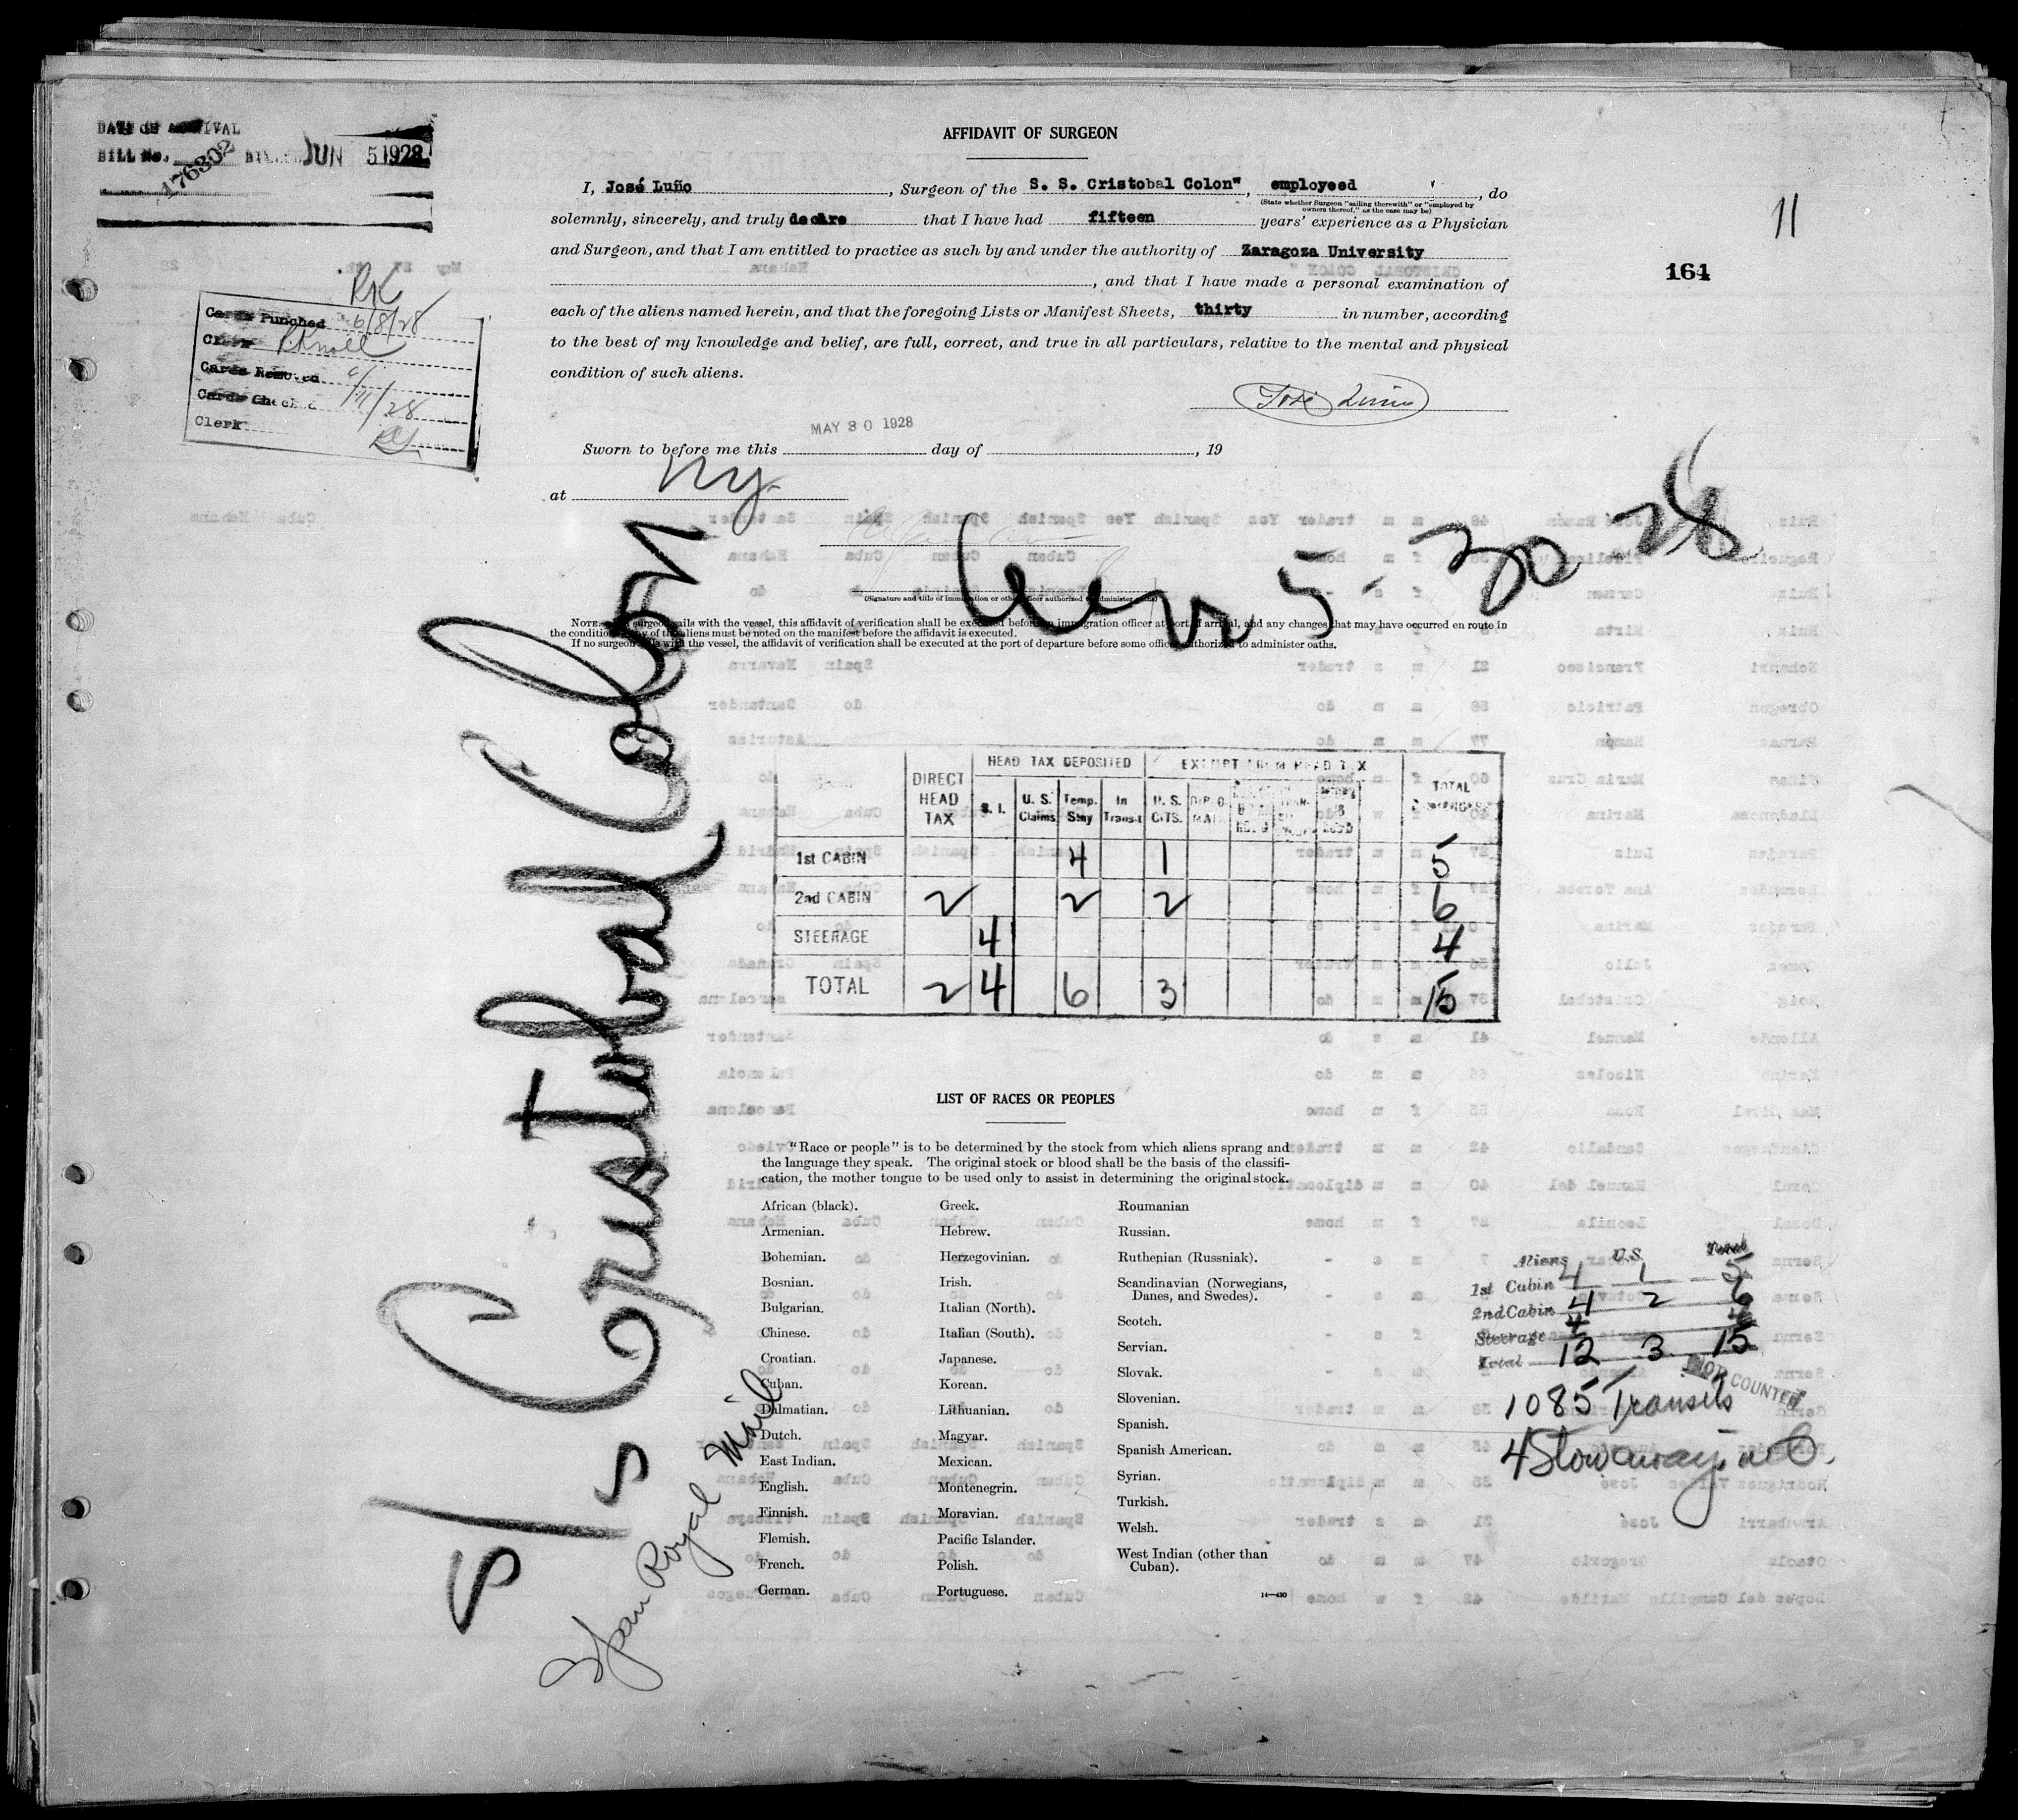 DATE OF ARRIVAL
BILL No. 176302 JUN 5 1928
11
164
RK
Cards Punched 6/8/28
Clerk
Cards Removed
Cards Checked /11/28
Clerk
AFFIDAVIT OF SURGEON
I, José Luño, Surgeon of the S. S. Cristobal Colon", employeed, do
(State whether Surgeon "sailing therewith" or "employed by
owners thereof," as the case may be)
solemnly, sincerely, and truly declare that I have had fifteen years' experience as a Physician
and Surgeon, and that I am entitled to practice as such by and under the authority of Zaragoza University
, and that I have made a personal examination of
each of the aliens named herein, and that the foregoing Lists or Manifest Sheets, thirty in number, according
to the best of my knowledge and belief, are full, correct, and true in all particulars, relative to the mental and physical
condition of such aliens.
MAY 30 1928
Sworn to before me this day of , 19
at NY.
5-30-28
(Signature and title of immigration or other officer authorized to administer oaths)
NOTE.—If surgeon sails with the vessel, this affidavit of verification shall be executed before an immigration officer at port of arrival, and any changes that may have occurred en route in
the condition of any of the aliens must be noted on the manifest before the affidavit is executed.
If no surgeon sails with the vessel, the affidavit of verification shall be executed at the port of departure before some officer authorized to administer oaths.
S/S Cristobal Colon
Span Royal Mail
DIRECT HEAD TAX
HEAD TAX DEPOSITED
EXEMPT FROM HEAD TAX
TOTAL PASSENGERS
S. I. U. S. Claims Temp. Stay In Transit U. S. CITS. DIPLOMAT
1st CABIN 4 1 5
2nd CABIN 2 2 2 6
STEERAGE 4 4
TOTAL 2 4 6 3 15
LIST OF RACES OR PEOPLES
"Race or people" is to be determined by the stock from which aliens sprang and
the language they speak. The original stock or blood shall be the basis of the classifi-
cation, the mother tongue to be used only to assist in determining the original stock.
African (black).
Armenian.
Bohemian.
Bosnian.
Bulgarian.
Chinese.
Croatian.
Cuban.
Dalmatian.
Dutch.
East Indian.
English.
Finnish.
Flemish.
French.
German.
Greek.
Hebrew.
Herzegovinian.
Irish.
Italian (North).
Italian (South).
Japanese.
Korean.
Lithuanian.
Magyar.
Mexican.
Montenegrin.
Moravian.
Pacific Islander.
Polish.
Portuguese.
Roumanian
Russian.
Ruthenian (Russniak).
Scandinavian (Norwegians,
Danes, and Swedes).
Scotch.
Servian.
Slovak.
Slovenian.
Spanish.
Spanish American.
Syrian.
Turkish.
Welsh.
West Indian (other than
Cuban).
14—430
Aliens U.S. Total
1st Cabin 4 1 5
2nd Cabin 4 2 6
Steerage 4 4
Total 12 3 15
NOT COUNTED
1085 Transits
4 Stowaways